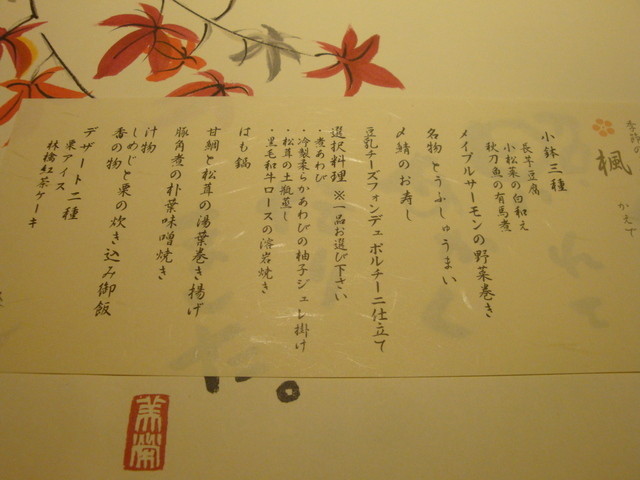 季節の
楓
かえで
小鉢三種
長芋豆腐
小松菜の白和え
秋刀魚の有馬煮
メイプルサーモンの野菜巻き
名物とうふしゅうまい
〆鯖のお寿し
豆乳チーズフォンデュポルチーニ仕立て
選択料理 ※一品お選び下さい
・煮あわび
・冷製柔らかあわびの柚子ジュレ掛け
・松茸の土瓶蒸し
・黒毛和牛ロースの溶岩焼き
はも鍋
甘鯛と松茸の湯葉巻き揚げ
豚角煮の朴葉味噌焼き
汁物
しめじと栗の炊き込み御飯
香の物
デザート二種
栗アイス
林檎紅茶ケーキ